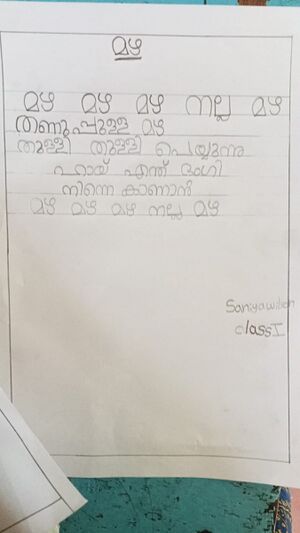 മഴ
മഴ മഴ മഴ നല്ല മഴ
തണുപ്പുള്ള മഴ
തുള്ളി തുള്ളി പെയ്യുന്നു
ഹായ് എന്ത് ഭംഗി
നിന്നെ കാണാൻ
മഴ മഴ മഴ നല്ല മഴ
class I